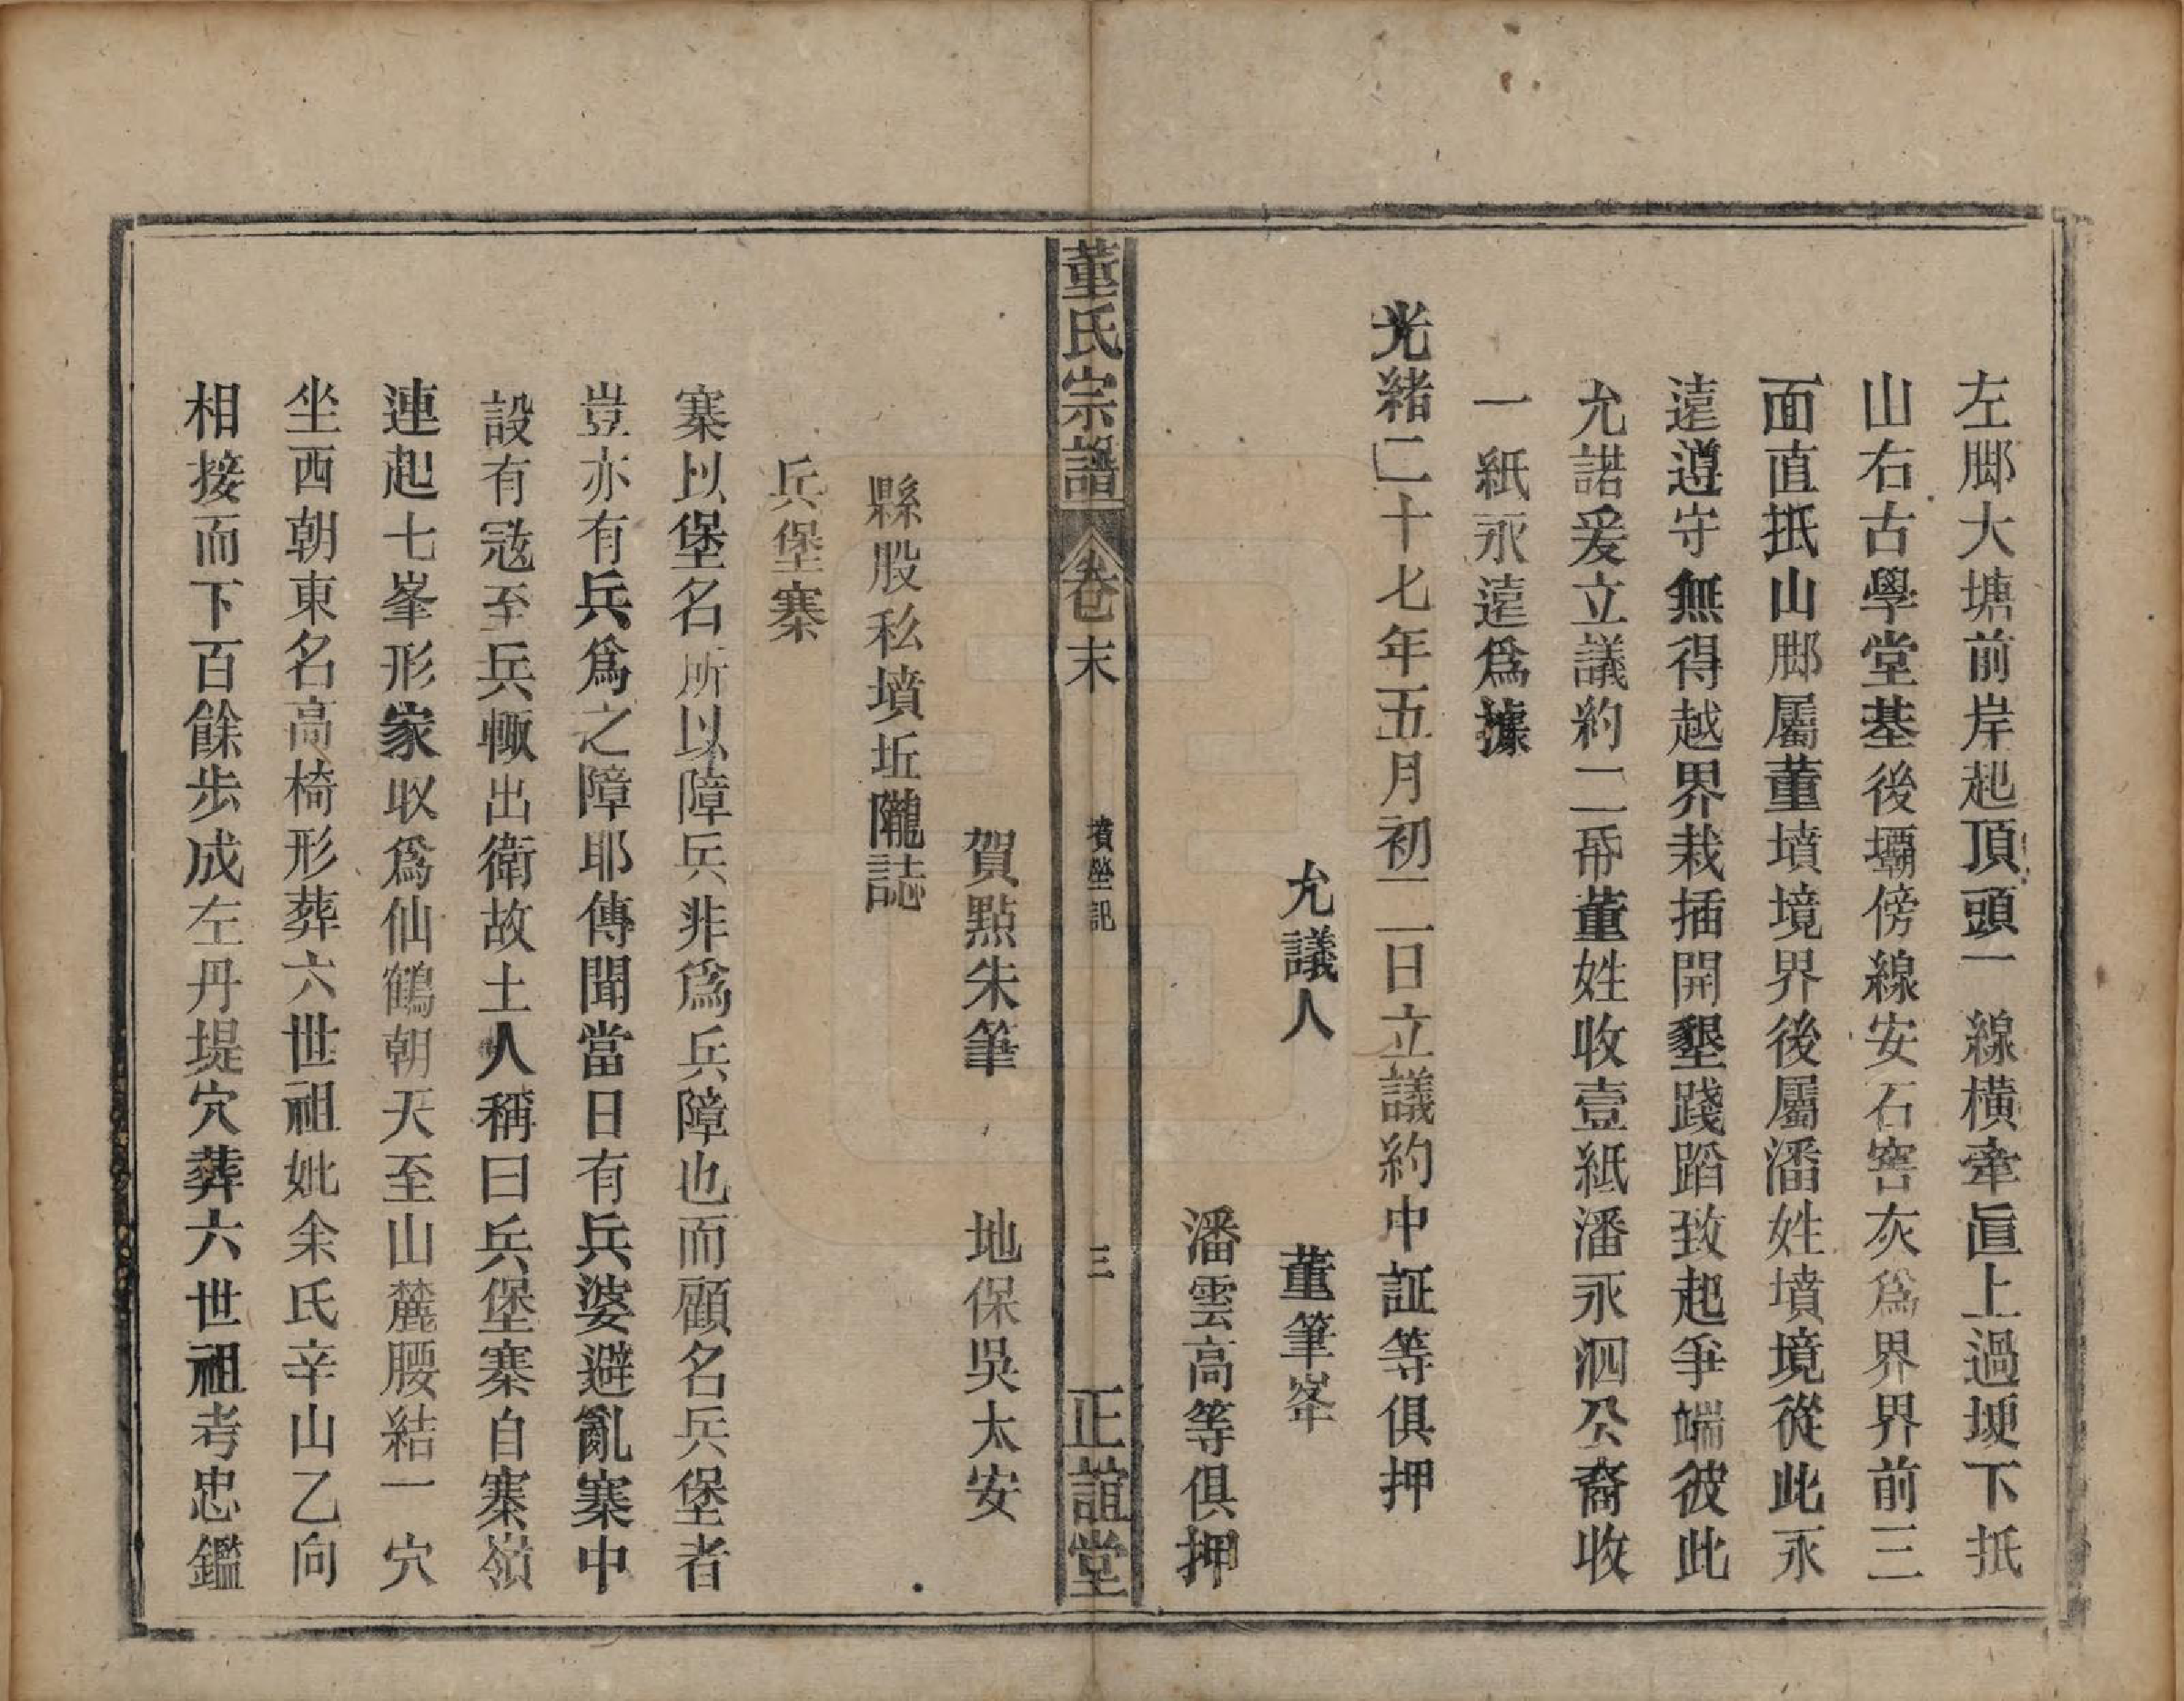 左脚大塘前岸起頂頭一線橫牽直上過埂下抵
山右古學堂基後壩傍線安石窖灰爲界界前三
面直抵山脚屬董墳境界後屬潘姓墳境從此永
遠遵守無得越界栽插開墾踐蹈致起爭端彼此
允諾爰立議約二帋董姓收壹紙潘永泗公裔收
一紙永遠爲據
光緒二十七年五月初二日立議約中証等俱押
允議人　董筆峯
潘雲高等俱押
董氏宗譜　卷末　墳塋記　三　正誼堂
賀點朱筆　地保吳太安
縣股私墳坵隴誌
兵堡寨
寨以堡名所以障兵非爲兵障也而顧名兵堡者
豈亦有兵爲之障耶傳聞當日有兵婆避亂寨中
設有寇至兵輙出衛故土人稱曰兵堡寨自寨嶺
連起七峯形家収爲仙鶴朝天至山麓腰結一穴
坐西朝東名高椅形葬六世祖妣余氏辛山乙向
相接而下百餘步成左丹堤穴葬六世祖考忠鑑